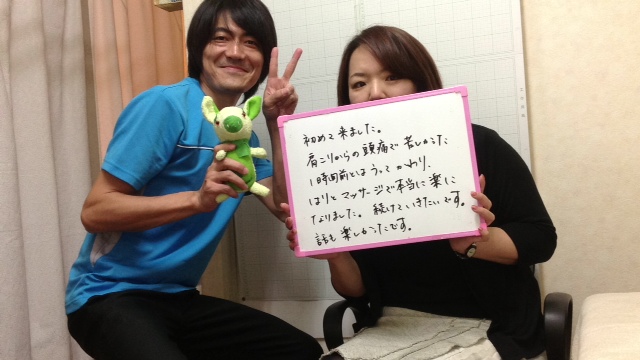 初めて来ました。
肩こりからの頭痛で苦しかった
1時間前とはうってかわり、
はりとマッサージで本当に楽に
なりました。続けていきたいです。
話も楽しかったです。